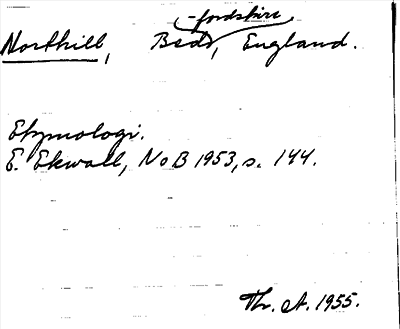 -fordshire
Northill, Beds, England.
Etymologi.
E. Ekwall, NoB 1953, s. 144.
Th. A. 1955.